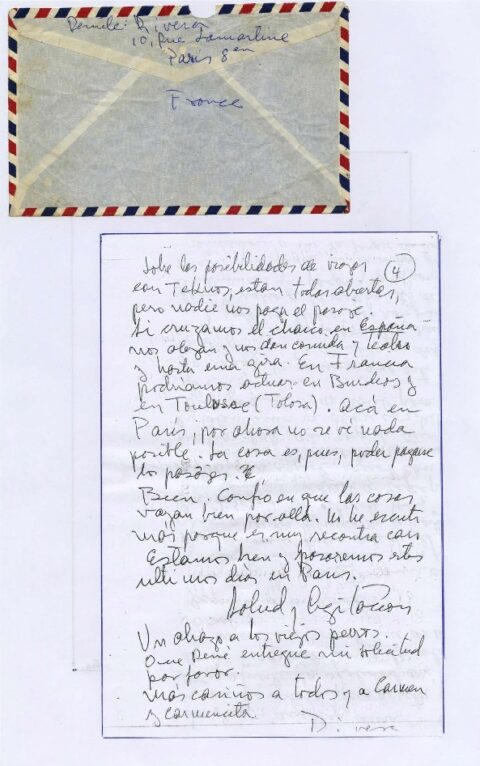 Remite: Rivera
10, Rue Lamartine
Paris
France
4
Sobre las posibilidades de viajes
con Teknos, estan todas abiertas,
pero nadie nos paga el pasaje.
Si cruzamos el charco, en España
nos alojan y nos dan comida y teatro
y hasta una gira. En Francia
podriamos actuar en Burdeos y
en Toulouse (Tolosa). Acá en
París, por ahora no se vé nada
posible. La cosa es, pues, poder pagarse
los pasajes.
Bien. Confio en que las cosas
vayan bien por allá. No he escrito
más porque es muy recontra caro
Estamos bien y pasaremos estos
ultimos dias en Paris.
Salud y Agitacion
Un abrazo a los viejos perros.
Que René entregue mi solicitud
por favor.
más cariños a todos y a Carmen
y Carmencita.